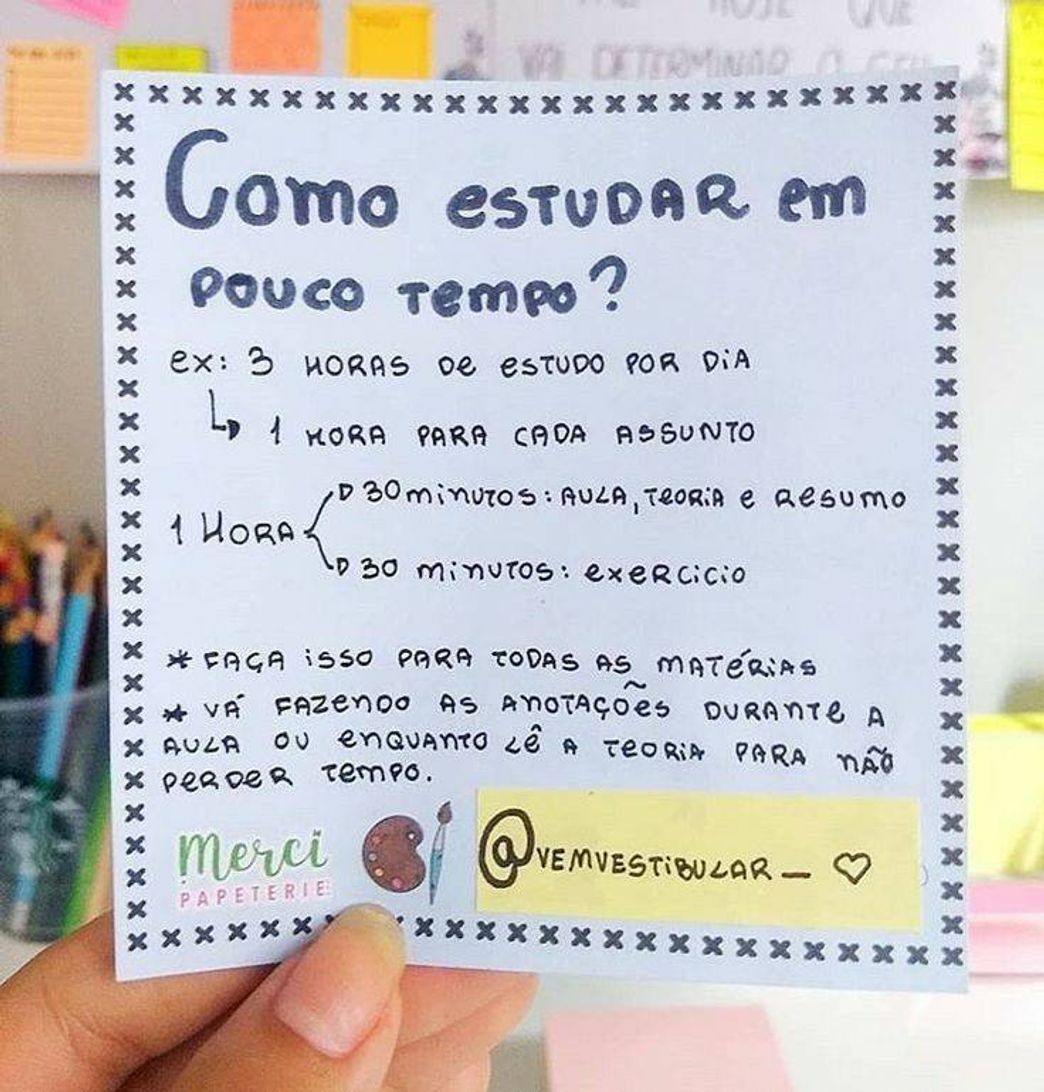 HOJE QUE
VAI DETERMINAR O SEU
Como estudar em
pouco tempo?
ex: 3 horas de estudo por dia
↳ 1 hora para cada assunto
30 minutos: aula, teoria e resumo
1 Hora
30 minutos: exercicio
* Faça isso para todas as matérias
* Vá fazendo as anotações durante a
aula ou enquanto lê a teoria para não
perder tempo.
Merci
PAPETERIE
@vemvestibular_ ♡